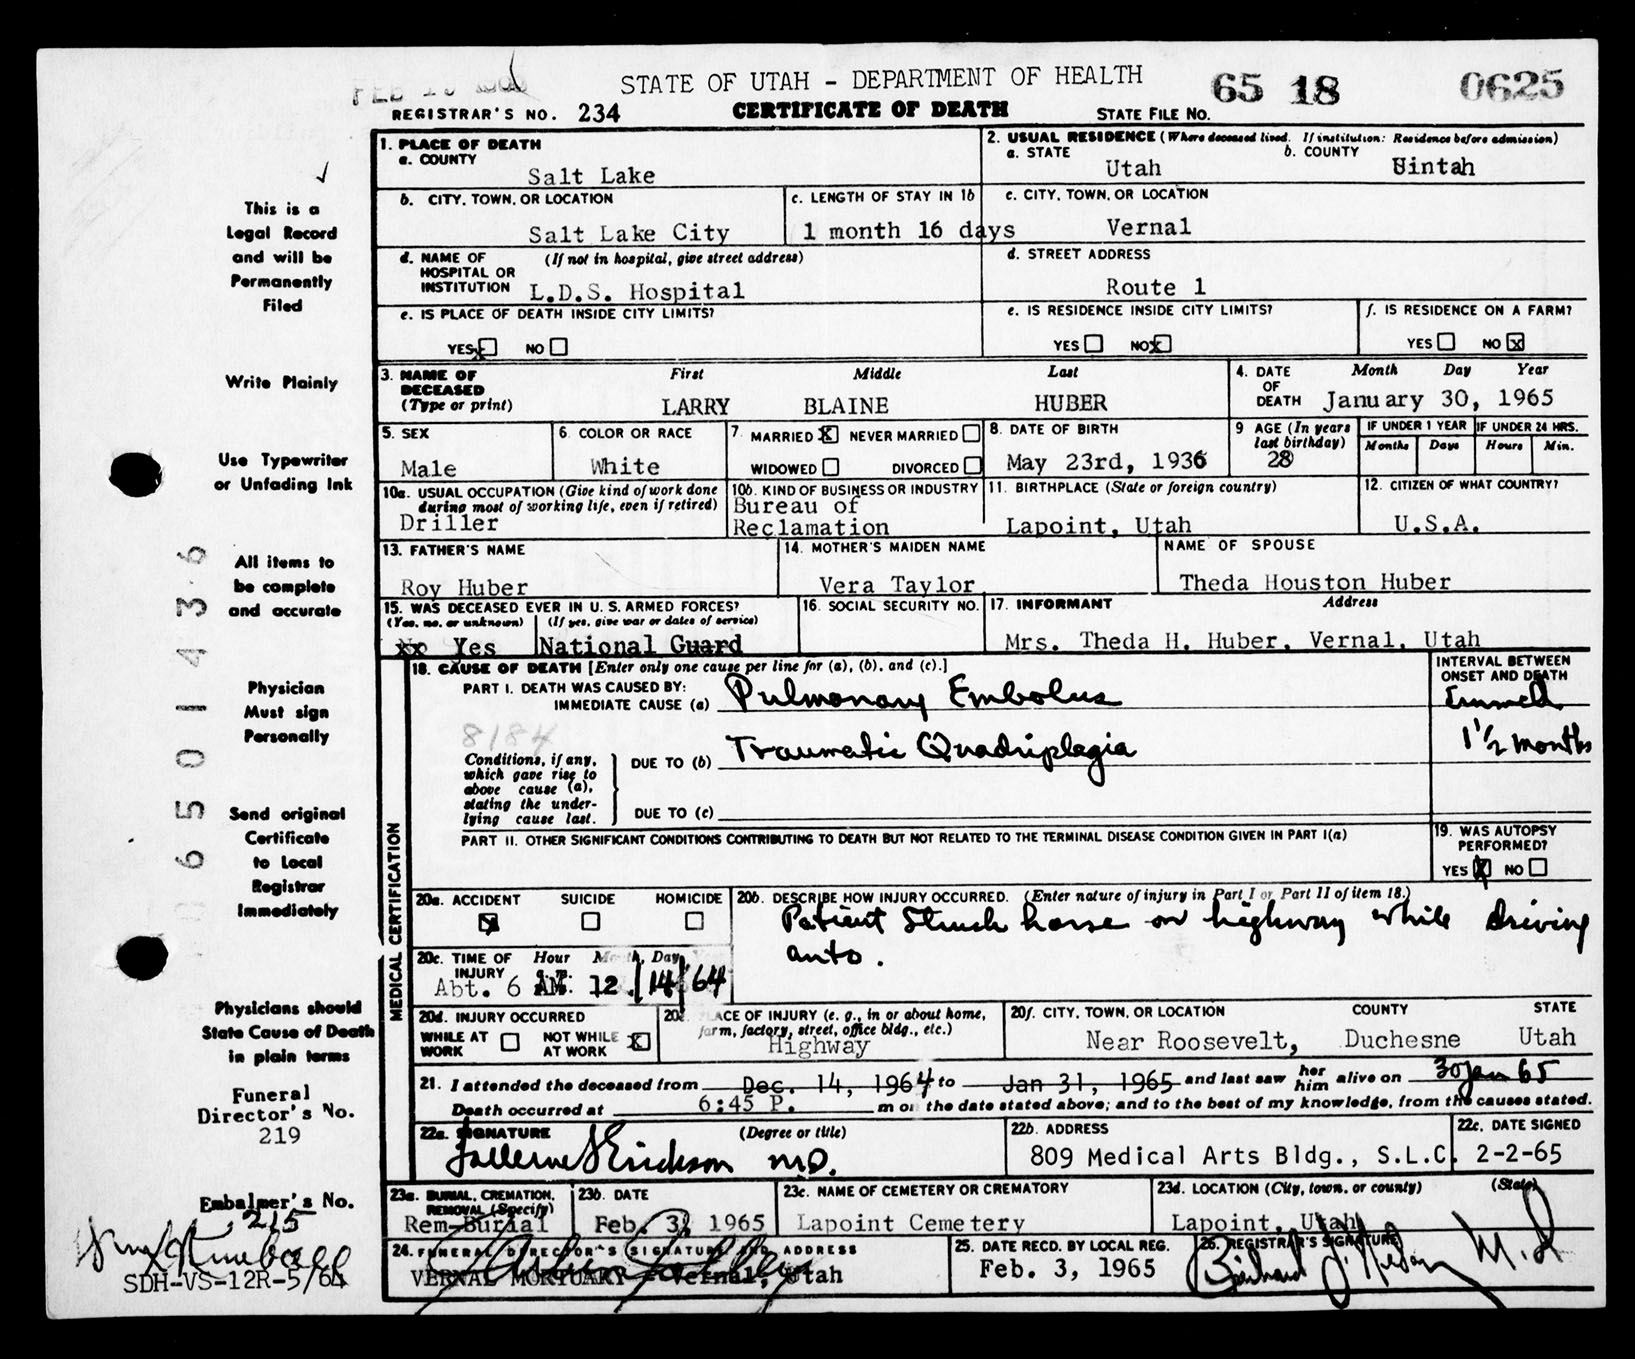 STATE OF UTAH - DEPARTMENT OF HEALTH
65 18 0625
REGISTRAR'S NO. 234 CERTIFICATE OF DEATH STATE FILE NO.
This is a
Legal Record
and will be
Permanently
Filed
Write Plainly
Use Typewriter
or Unfading Ink
All items to
be complete
and accurate
Physician
Must sign
Personally
Send original
Certificate
to Local
Registrar
Immediately
Physicians should
State Cause of Death
in plain terms
Funeral
Director's No.
219
Embalmer's No.
215
SDH-VS-12R-5/64
06501436
1. PLACE OF DEATH
a. COUNTY
Salt Lake
2. USUAL RESIDENCE (Where deceased lived. If institution: Residence before admission)
a. STATE b. COUNTY
Utah Uintah
b. CITY, TOWN, OR LOCATION
Salt Lake City
c. LENGTH OF STAY IN 1b
1 month 16 days
c. CITY, TOWN, OR LOCATION
Vernal
d. NAME OF (If not in hospital, give street address)
HOSPITAL OR
INSTITUTION L.D.S. Hospital
d. STREET ADDRESS
Route 1
e. IS PLACE OF DEATH INSIDE CITY LIMITS?
YES x NO
e. IS RESIDENCE INSIDE CITY LIMITS?
YES NO x
f. IS RESIDENCE ON A FARM?
YES NO x
3. NAME OF First Middle Last
DECEASED
(Type or print) LARRY BLAINE HUBER
4. DATE Month Day Year
OF
DEATH January 30, 1965
5. SEX
Male
6. COLOR OR RACE
White
7. MARRIED x NEVER MARRIED
WIDOWED DIVORCED
8. DATE OF BIRTH
May 23rd, 1936
9 AGE (In years
last birthday)
28
IF UNDER 1 YEAR IF UNDER 24 HRS.
Months Days Hours Min.
10a. USUAL OCCUPATION (Give kind of work done
during most of working life, even if retired)
Driller
10b. KIND OF BUSINESS OR INDUSTRY
Bureau of
Reclamation
11. BIRTHPLACE (State or foreign country)
Lapoint, Utah
12. CITIZEN OF WHAT COUNTRY?
U.S.A.
13. FATHER'S NAME
Roy Huber
14. MOTHER'S MAIDEN NAME
Vera Taylor
NAME OF SPOUSE
Theda Houston Huber
15. WAS DECEASED EVER IN U.S. ARMED FORCES?
(Yes, no, or unknown) (If yes, give war or dates of service)
Yes National Guard
16. SOCIAL SECURITY NO.
17. INFORMANT Address
Mrs. Theda H. Huber, Vernal, Utah
MEDICAL CERTIFICATION
18. CAUSE OF DEATH [Enter only one cause per line for (a), (b), and (c).]
INTERVAL BETWEEN
ONSET AND DEATH
PART I. DEATH WAS CAUSED BY:
IMMEDIATE CAUSE (a) Pulmonary Embolus
8184
Conditions, if any,
which gave rise to
above cause (a),
stating the under-
lying cause last.
DUE TO (b) Traumatic Quadriplegia 1 1/2 months
DUE TO (c)
PART II. OTHER SIGNIFICANT CONDITIONS CONTRIBUTING TO DEATH BUT NOT RELATED TO THE TERMINAL DISEASE CONDITION GIVEN IN PART I(a)
19. WAS AUTOPSY
PERFORMED?
YES x NO
20a. ACCIDENT SUICIDE HOMICIDE
x
20b. DESCRIBE HOW INJURY OCCURRED. (Enter nature of injury in Part I or Part II of item 18.)
Patient Struck horse on highway while driving
auto.
20c. TIME OF Hour Month, Day, Year
INJURY
Abt. 6 AM. 12/14/64
20d. INJURY OCCURRED
WHILE AT WORK NOT WHILE AT WORK x
20e. PLACE OF INJURY (e. g., in or about home,
farm, factory, street, office bldg., etc.)
Highway
20f. CITY, TOWN, OR LOCATION COUNTY STATE
Near Roosevelt, Duchesne Utah
21. I attended the deceased from Dec. 14, 1964 to Jan 31, 1965 and last saw her him alive on 30 Jan 65
Death occurred at 6:45 P. m on the date stated above; and to the best of my knowledge, from the causes stated.
22a. SIGNATURE (Degree or title)
Erickson M.D.
22b. ADDRESS
809 Medical Arts Bldg., S.L.C.
22c. DATE SIGNED
2-2-65
23a. BURIAL, CREMATION,
REMOVAL (Specify)
Rem-Burial
23b. DATE
Feb. 3, 1965
23c. NAME OF CEMETERY OR CREMATORY
Lapoint Cemetery
23d. LOCATION (City, town, or county) (State)
Lapoint, Utah
24. FUNERAL DIRECTOR'S SIGNATURE AND ADDRESS
VERNAL MORTUARY - Vernal, Utah
25. DATE RECD. BY LOCAL REG.
Feb. 3, 1965
26. REGISTRAR'S SIGNATURE
M.D.